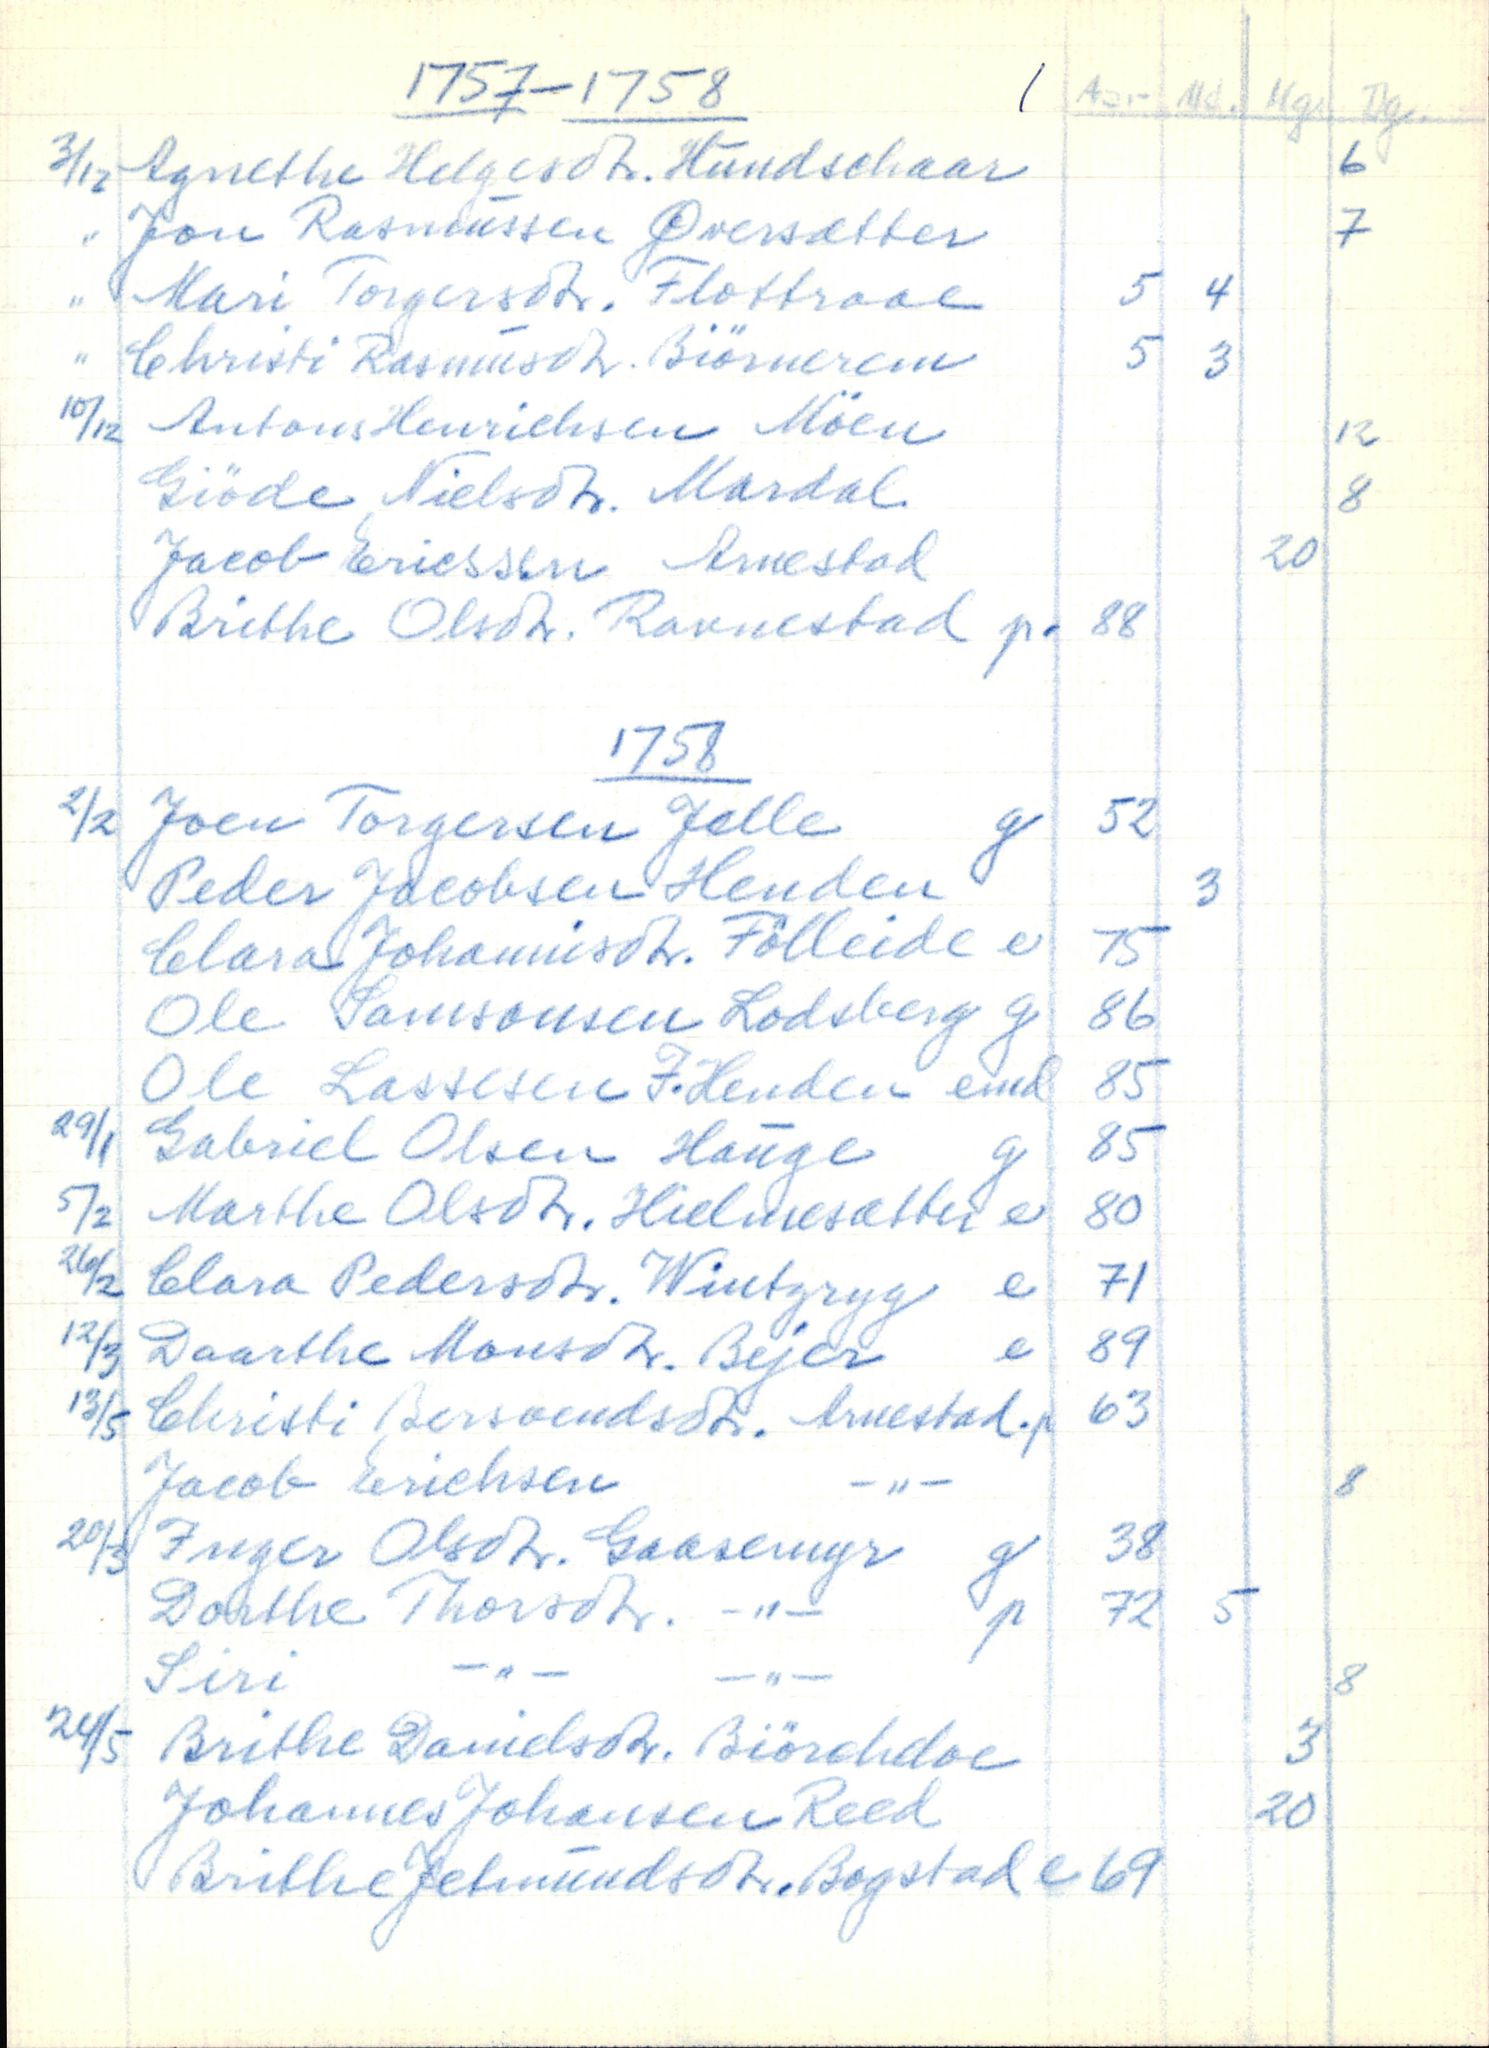 1757-1758 / Aar Md. Ug. Dg.
3/12 Agnethe Helgesdtr. Hundschaar 6
" Jon Rasmussen Øversætter 7
" Mari Torgersdtr. Flottraae 5 4
" Christi Rasmusdtr. Biörnerem 5 3
10/12 Antons Henrichsen Möen 12
Giöde Nielsdtr. Mardal 8
Jacob Ericssen Arnestad 20
Brithe Olsdtr. Ravnestad p. 88
1758
2/2 Joen Torgersen Jelle g 52
Peder Jacobsen Henden 3
Clara Johannisdtr. Fölleide e 75
Ole Samsonsen Lodsberg g 86
Ole Lassesen J. Henden emd 85
29/1 Gabriel Olsen Hauge g 85
5/2 Marthe Olsdtr. Hielmesætter e 80
26/2 Clara Pedersdtr. Wintzryg e 71
12/3 Daarthe Monsdtr. Bejer e 89
13/5 Christi Bersvendsdtr. Arnestad. p 63
Jacob Erichsen -"- 8
20/3 Inger Olsdtr. Gaasemyr g 38
Dorthe Thorsdtr. -"- p 72 5
Siri -"- -"- 8
24/5 Brithe Danielsdtr. Biörchdoe 3
Johannes Johansen Reed 20
Brithe Jetmundsdtr. Bogstad e 69